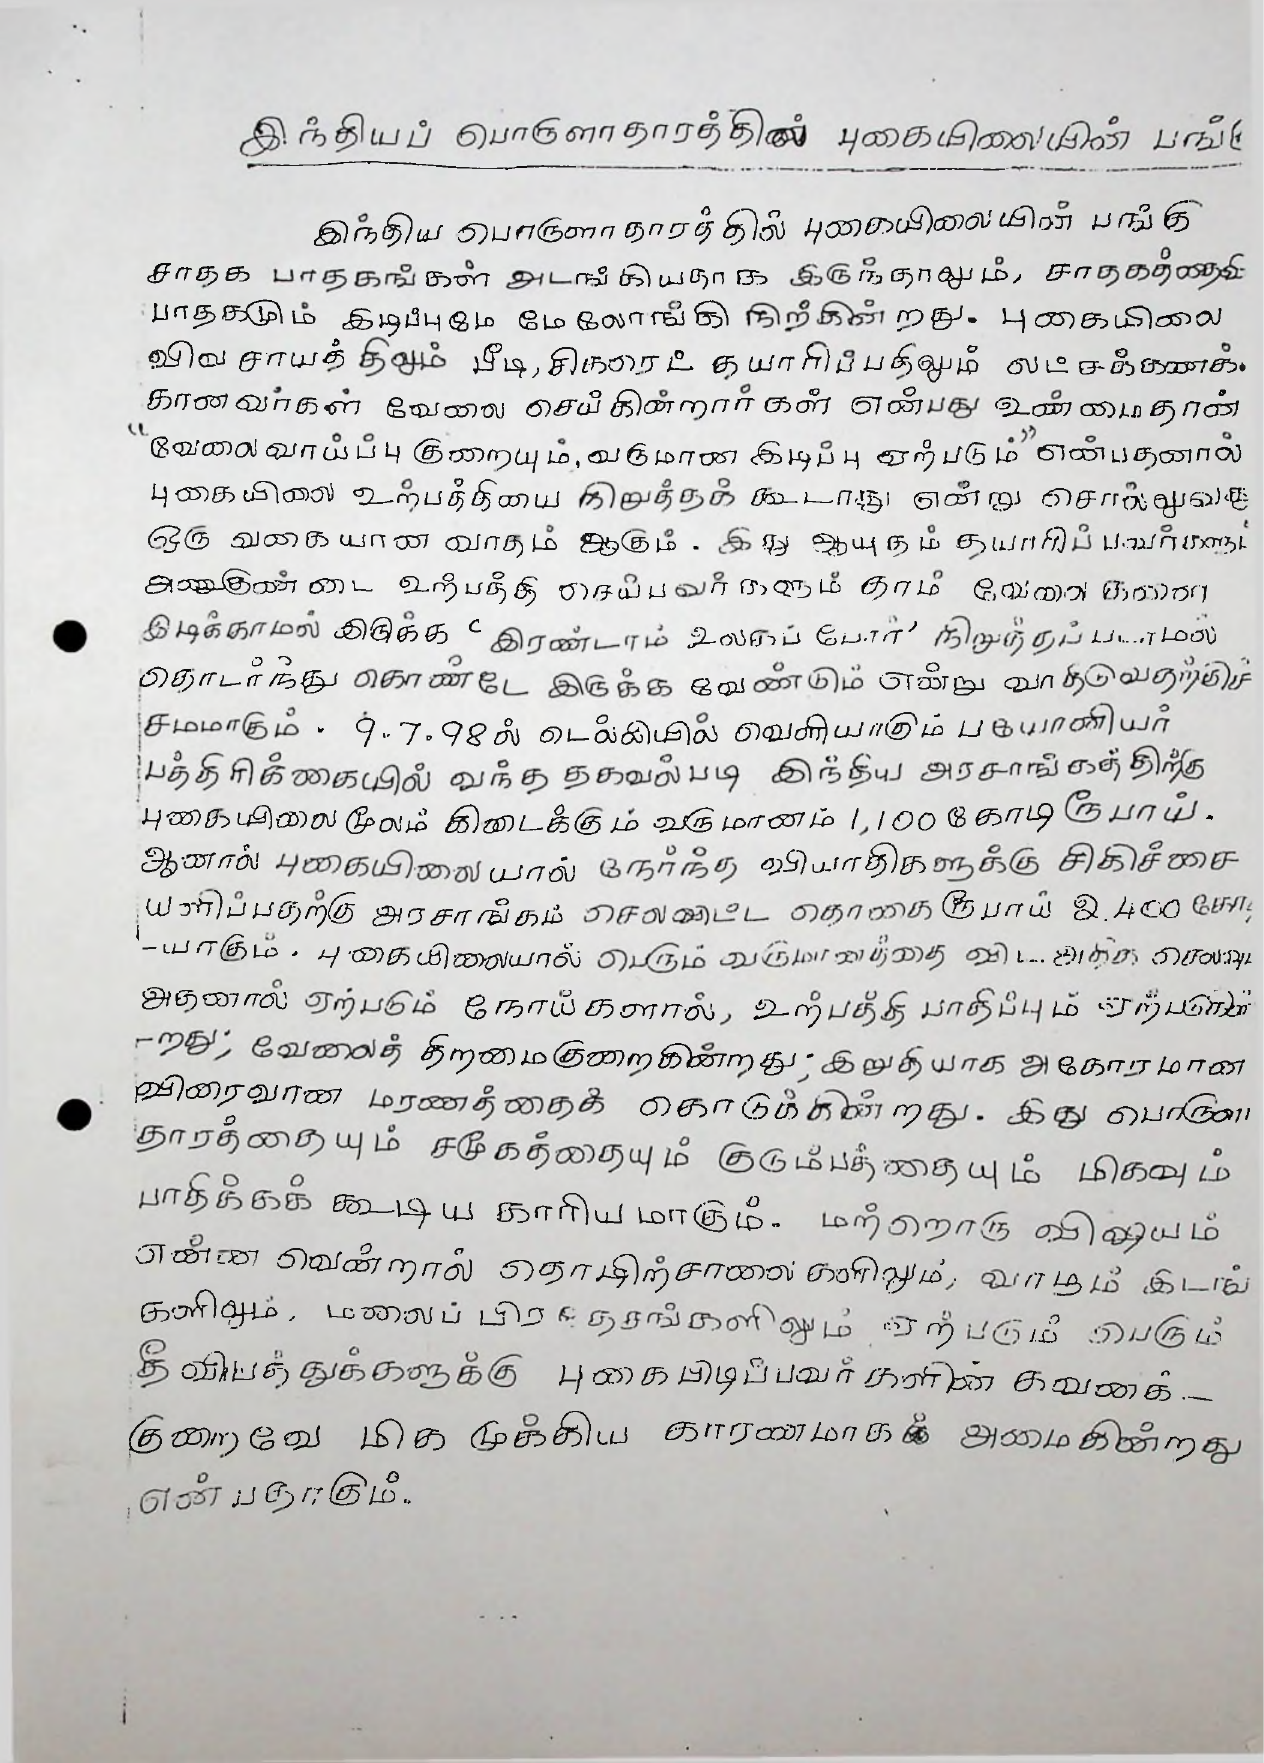 இந்தியப் பொருளாதாரத்தில் புகையிலையின் பங்கு
இந்திய பொருளாதாரத்தில் புகையிலையின் பங்கு
சாதக பாதகங்கள் அடங்கியதாக இருந்தாலும், சாதகத்தைவிட
பாதகமும் இழப்புமே மேலோங்கி நிற்கின்றது. புகையிலை
விவசாயத்திலும் பீடி, சிகரைட் தயாரிப்பதிலும் லட்சக்கணக்
கானவர்கள் வேலை செய்கின்றார்கள் என்பது உண்மைதான்
"வேலைவாய்ப்பு குறையும், வருமான இழப்பு ஏற்படும்" என்பதனால்
புகையிலை உற்பத்தியை நிறுத்தக் கூடாது என்று சொல்லுவது
ஒரு வகையான வாதம் ஆகும். இது ஆயுதம் தயாரிப்பவர்களும்
அணுகுண்டை உற்பத்தி செய்பவர்களும் தாம் வேலை
இழக்காமல் இருக்க 'இரண்டாம் உலகப் போர்' நிறுத்தப்படாமல்
தொடர்ந்து கொண்டே இருக்க வேண்டும் என்று வாதடுவதற்குச்
சமமாகும். 9.7.98ல் டெல்லியில் வெளியாகும் பயோனியர்
பத்திரிக்கையில் வந்த தகவல்படி இந்திய அரசாங்கத்திற்கு
புகையிலை மூலம் கிடைக்கும் வருமானம் 1,100 கோடி ரூபாய்.
ஆனால் புகையிலையால் நேர்ந்த வியாதிகளுக்கு சிகிச்சை
யளிப்பதற்கு அரசாங்கம் செலவிட்ட தொகை ரூபாய் 2.400 கோடி
-யாகும். புகையிலையால் பெரும் வருமானத்தை விட அதிக செலவு
அதனால் ஏற்படும் நோய்களால், உற்பத்தி பாதிப்பும் ஏற்படுகின்
-றது; வேலைத் திறமைகுறைகின்றது; இறுதியாக அகோரமான
விரைவான மரணத்தைக் கொடுக்கின்றது. இது பொருளா
தாரத்தையும் சமூகத்தையும் குடும்பத்தையும் மிகவும்
பாதிக்கக் கூடிய காரியமாகும். மற்றொரு விஷயம்
என்ன வென்றால் தொழிற்சாலைகளிலும், வாழும் இடங்
களிலும், மலைப் பிரதேசங்களிலும் ஏற்படும் பெரும்
தீ விபத்துக்களுக்கு புகைபிடிப்பவர்களின் கவனக் -
குறைவே மிக முக்கிய காரணமாக அமைகின்றது
என்பதாகும்.